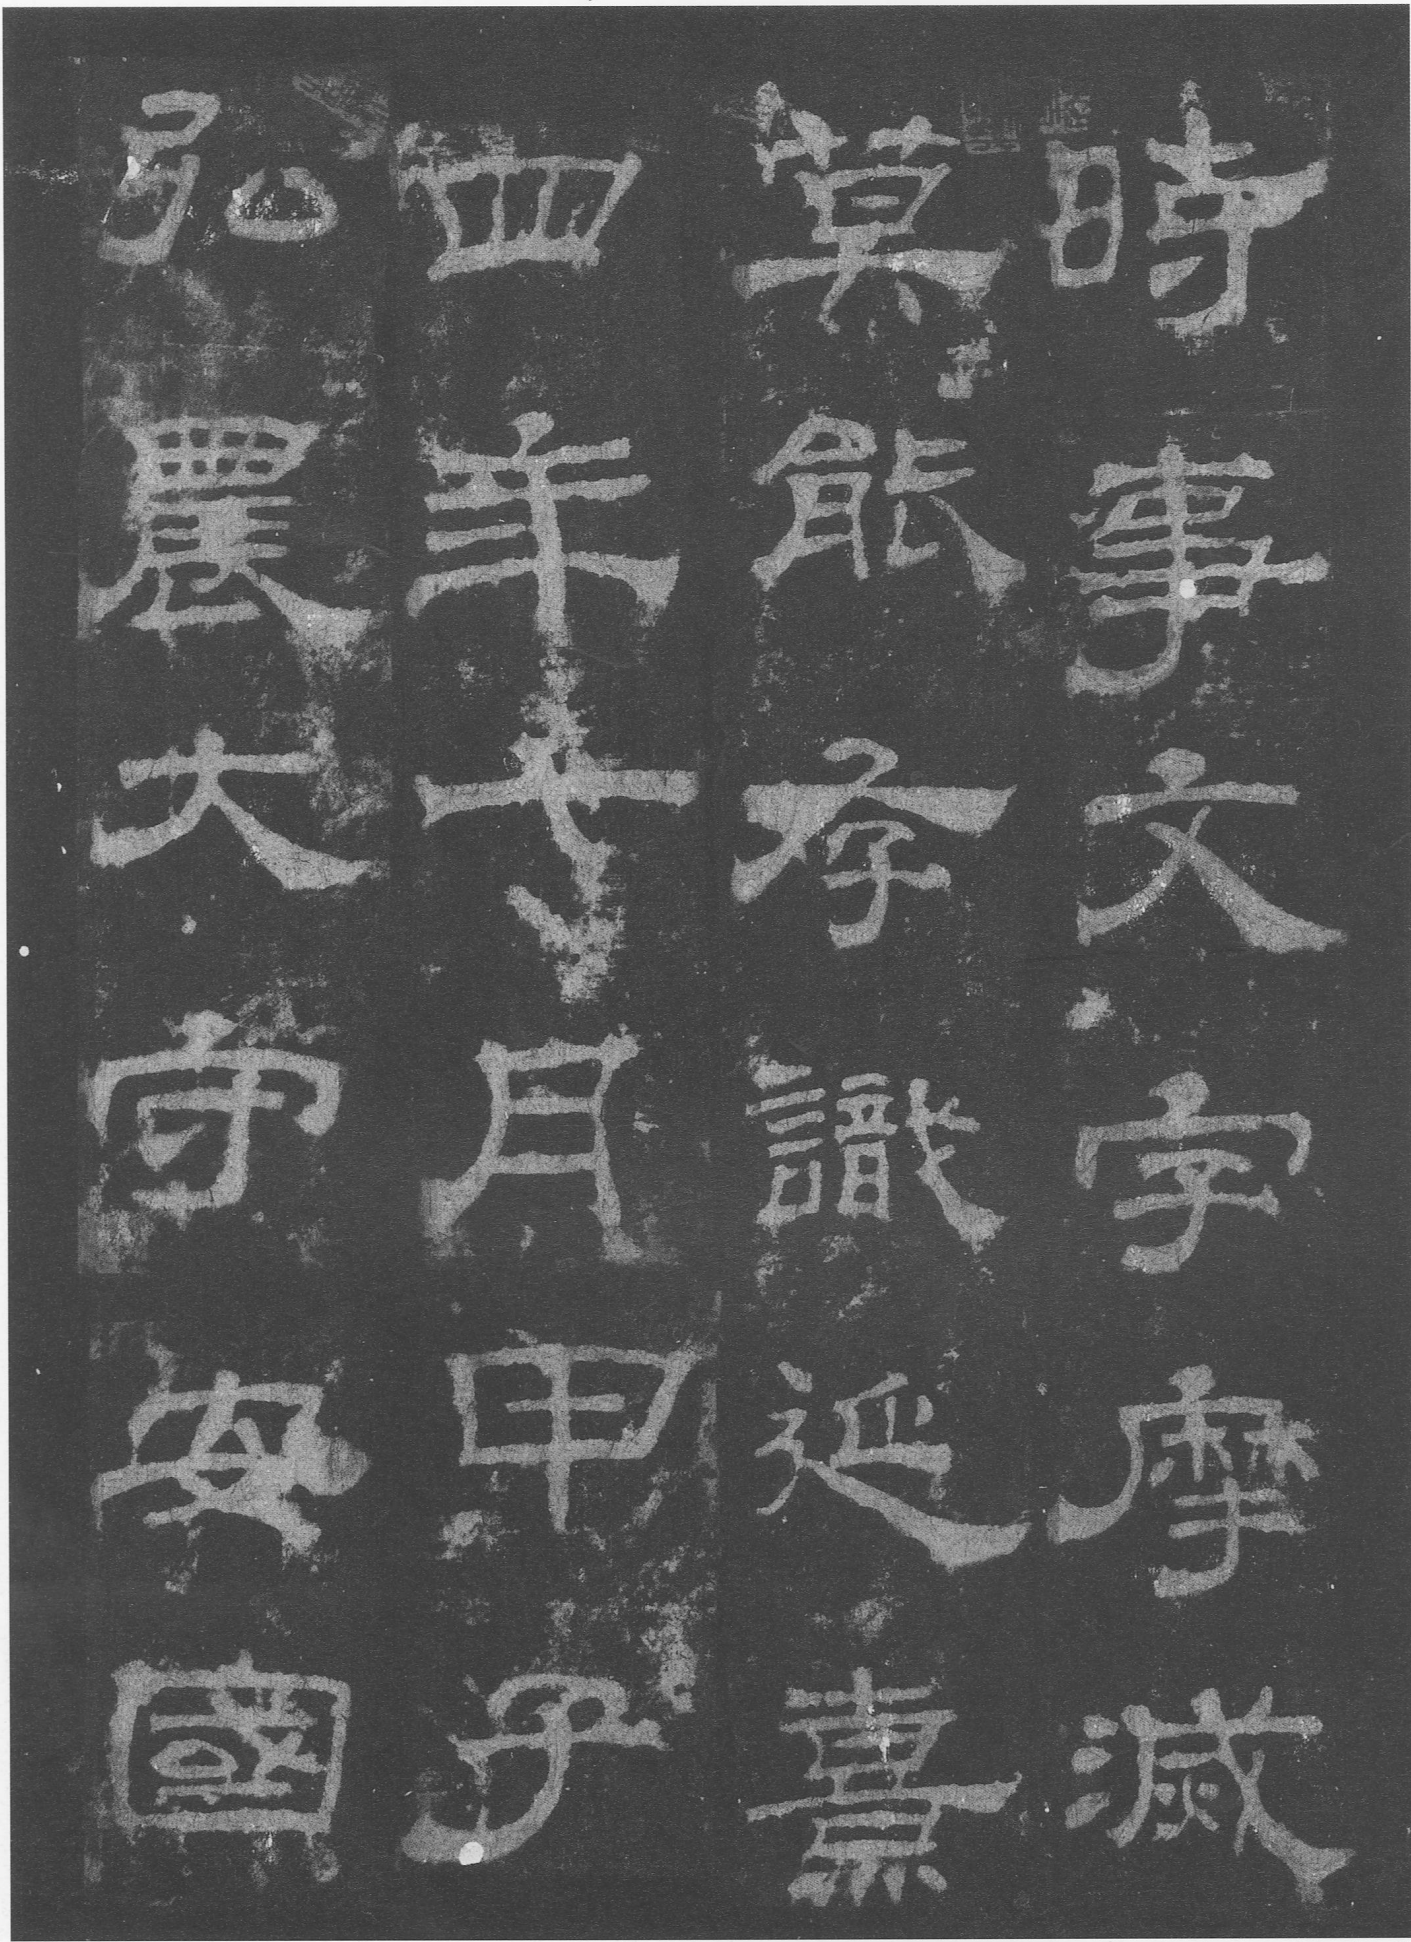 時事文字摩滅
莫能存識延熹
四年七月甲子
弘農大守安國